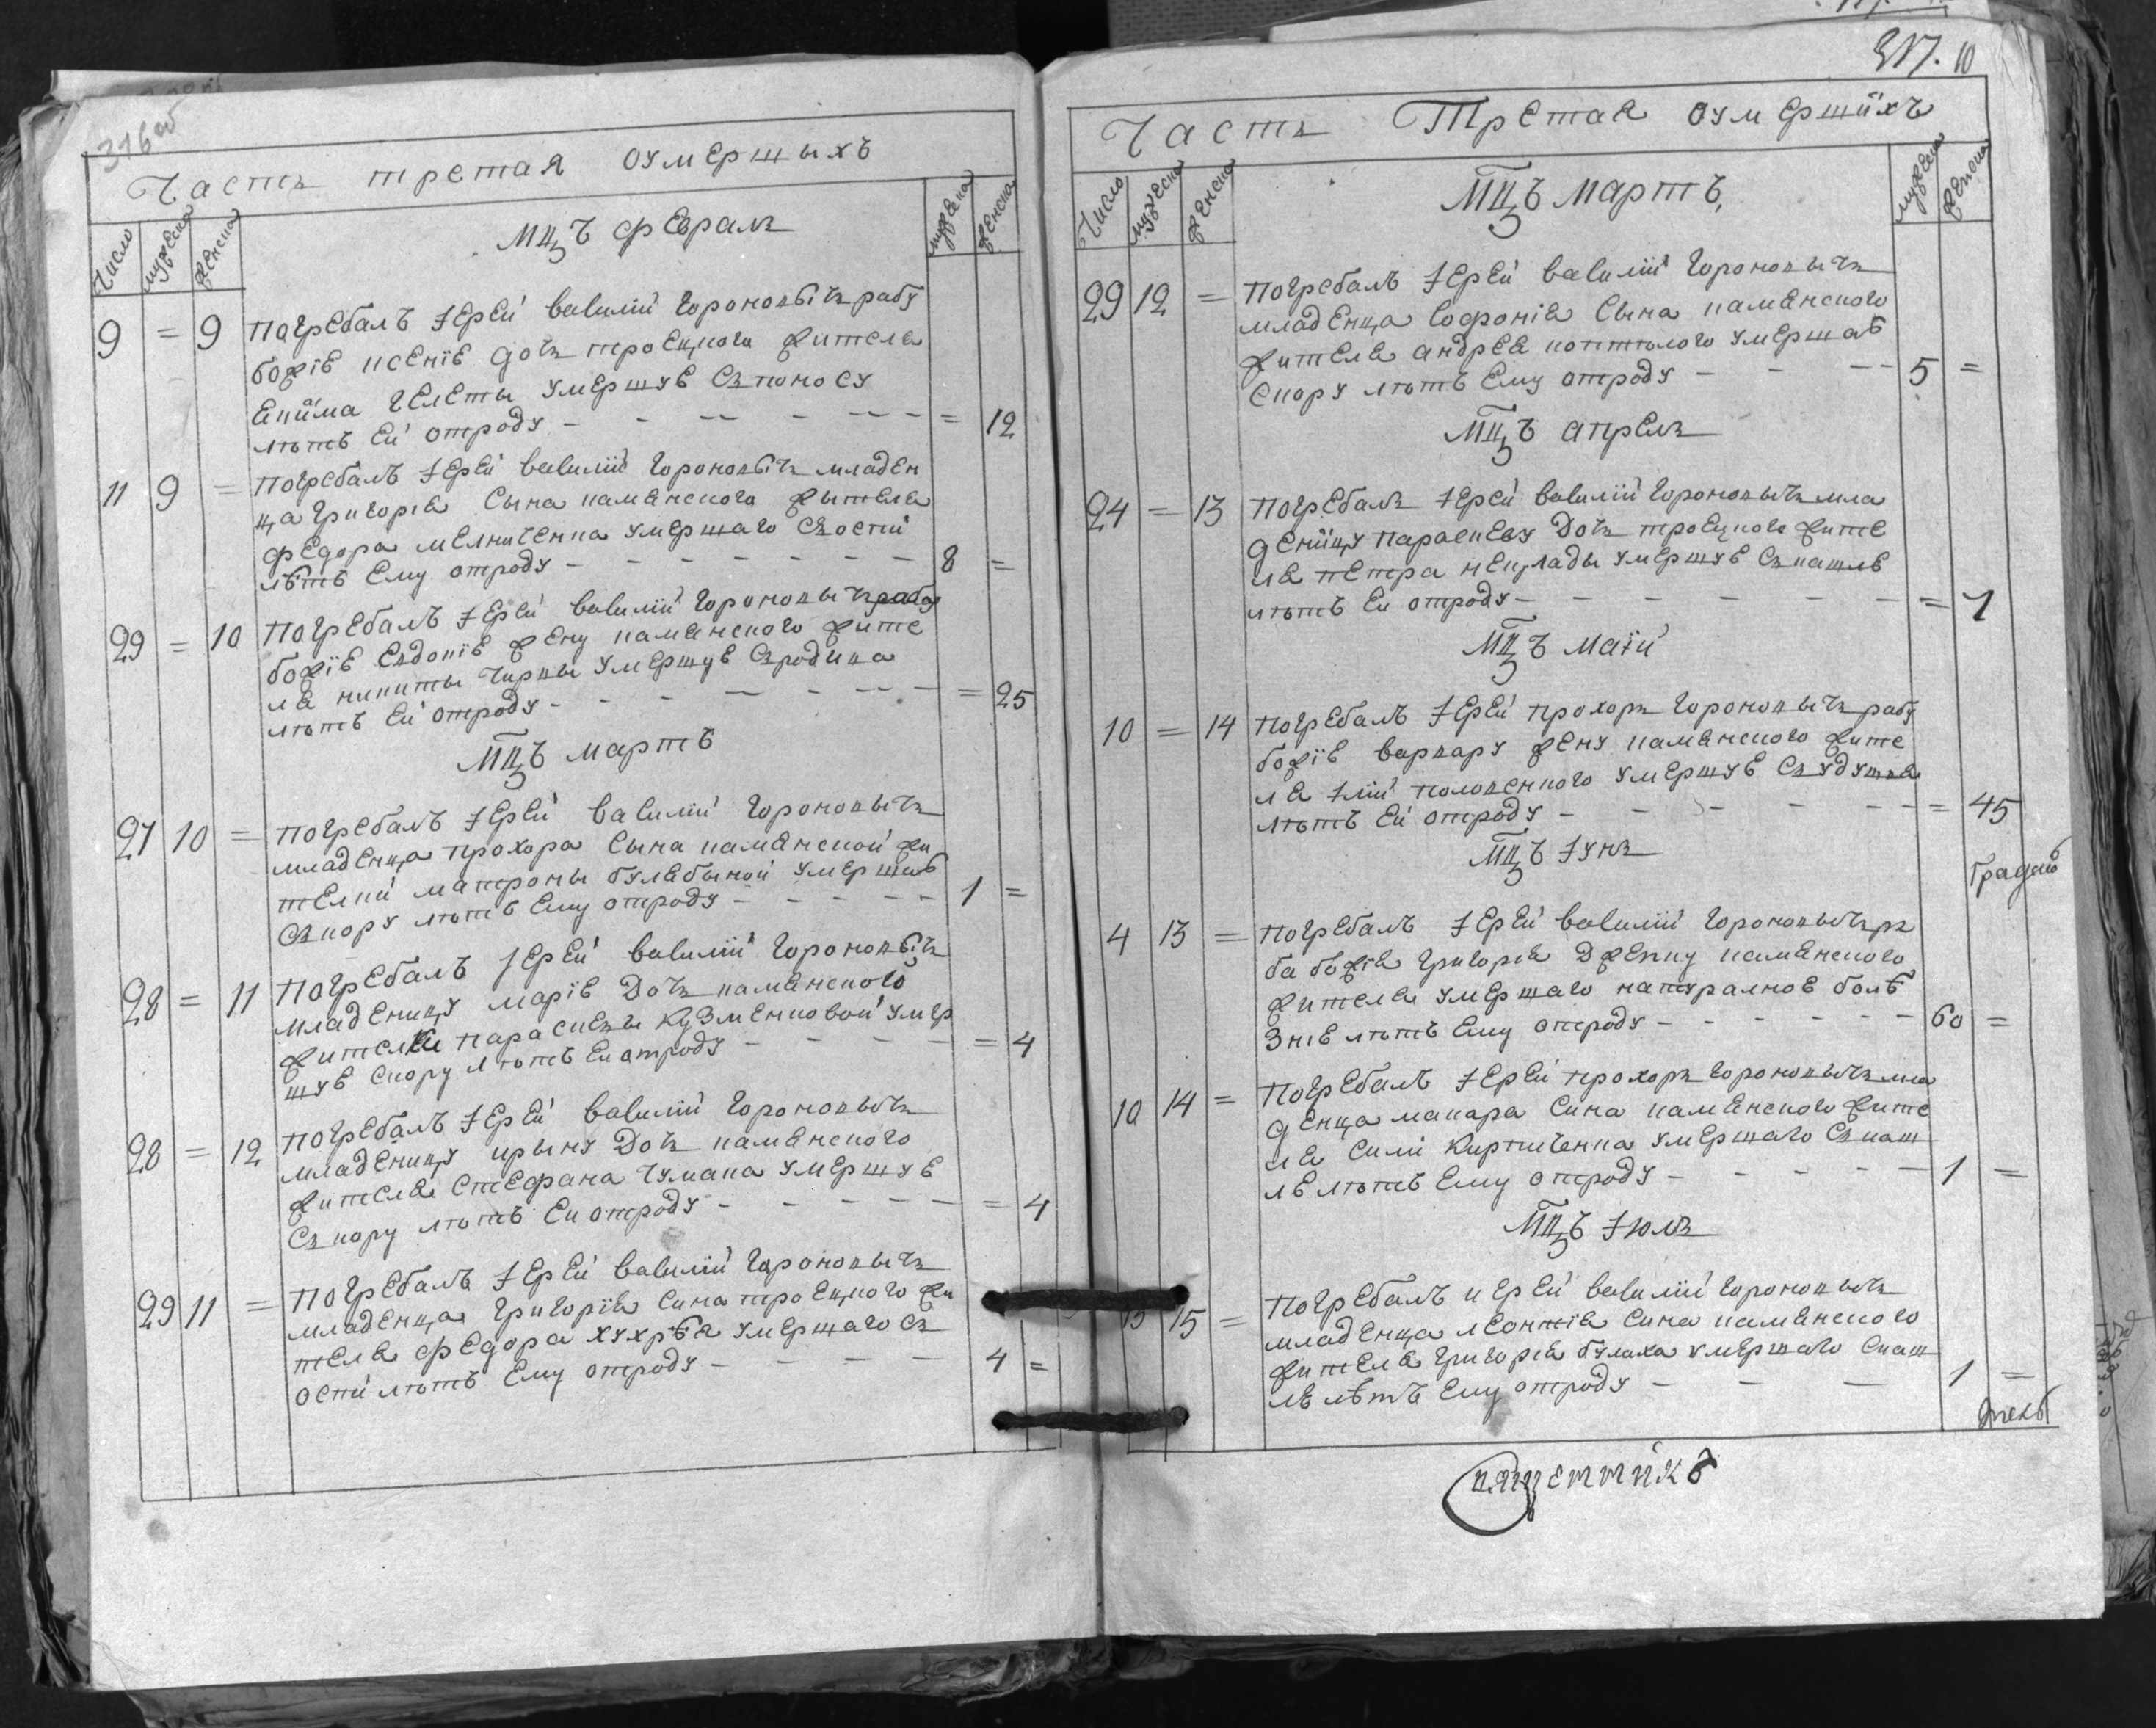 316 об
Часть третая оумершыхъ
Число мужеска женска
мужеска женска
Мцъ февраль
9 = 9 Погребалъ іерей василий Гороновычъ рабу
божіе ксеніе дочь троецкого жителя
Екима Гелеты умершуе съ поносу
лѣтъ ей отроду - - - - = 12
11 9 = Погребалъ іерей василий Гороновычъ младен
ца григорія сына каменского жытеля
федора мелниченка умершаго съ оспи
лѣтъ ему отроду - - - - 8 =
29 = 10 Погребалъ іерей василий Гороновычъ рабу
божіе евдокіе жену каменского жите
ля никиты чирвы умершуе съ родива
лѣтъ ей отроду - - - - = 25
Мцъ мартъ
27 10 = Погребалъ іерей василий Гороновычъ
младенца прохора сына каменской жи
телки матроны булабыной умершаго
съ кору лѣтъ ему отроду - - - - 1 =
28 = 11 Погребалъ іерей василий Гороновычъ
младеницу маріе дочь каменского
жителки параскевы кузменковой умер
шуе с кору лѣтъ еи отроду - - - - = 4
28 = 12 Погребалъ іерей василий Гороновычъ
младеницу ирыну дочь каменского
жителя стефана чумака умершуе
съ кору лѣтъ еи отроду - - - - = 4
29 11 = Погребалъ іерей василий Гороновычъ
младенца григорія сина троецкого жи
теля федора хухрѣя умершаго съ
оспи лѣтъ ему отроду - - - - 4 =
317. 10
Часть третая оумершихъ
Число мужеска женска
мужеска женска
Мцъ мартъ
29 12 = Погребалъ іерей василий Гороновычъ
младенца софронія сына каменского
жителя андрея коптилого умершаг
с кору лѣтъ ему отроду - - - 5 =
Мцъ апрель
24 = 13 Погребалъ іерей василий Гороновычъ мла
деницу параскеву дочь троецкого жите
ля петра нецлады умершуе съ кашле
лѣтъ еи отроду - - - - = 1
Мцъ маій
10 = 14 Погребалъ іерей прохоръ Гороновычъ рабу
божіе варвару жену каменского жите
ля іліи половенного умершуе съ удушья
лѣтъ ей отроду - - - - = 45
Мцъ іунь
4 13 = Погребалъ іерей василий Гороновычъ ра
ба божія григорія каменского
жителя умершаго натуралное болѣ
зніе лѣтъ ему отроду - - - - 60 =
10 14 = Погребалъ іерей прохоръ Гороновычъ мла
денца макара сина каменского жите
ля сили кирпиченка умершаго съ каш
ле лѣтъ ему отроду - - - - 1 =
Мцъ іюль
15 15 = Погребалъ иерей василий Гороновычъ
младенца леонтія сина каменского
жителя григорія булаха умершаго с каш
ле лѣтъ ему отроду - - - 1 =